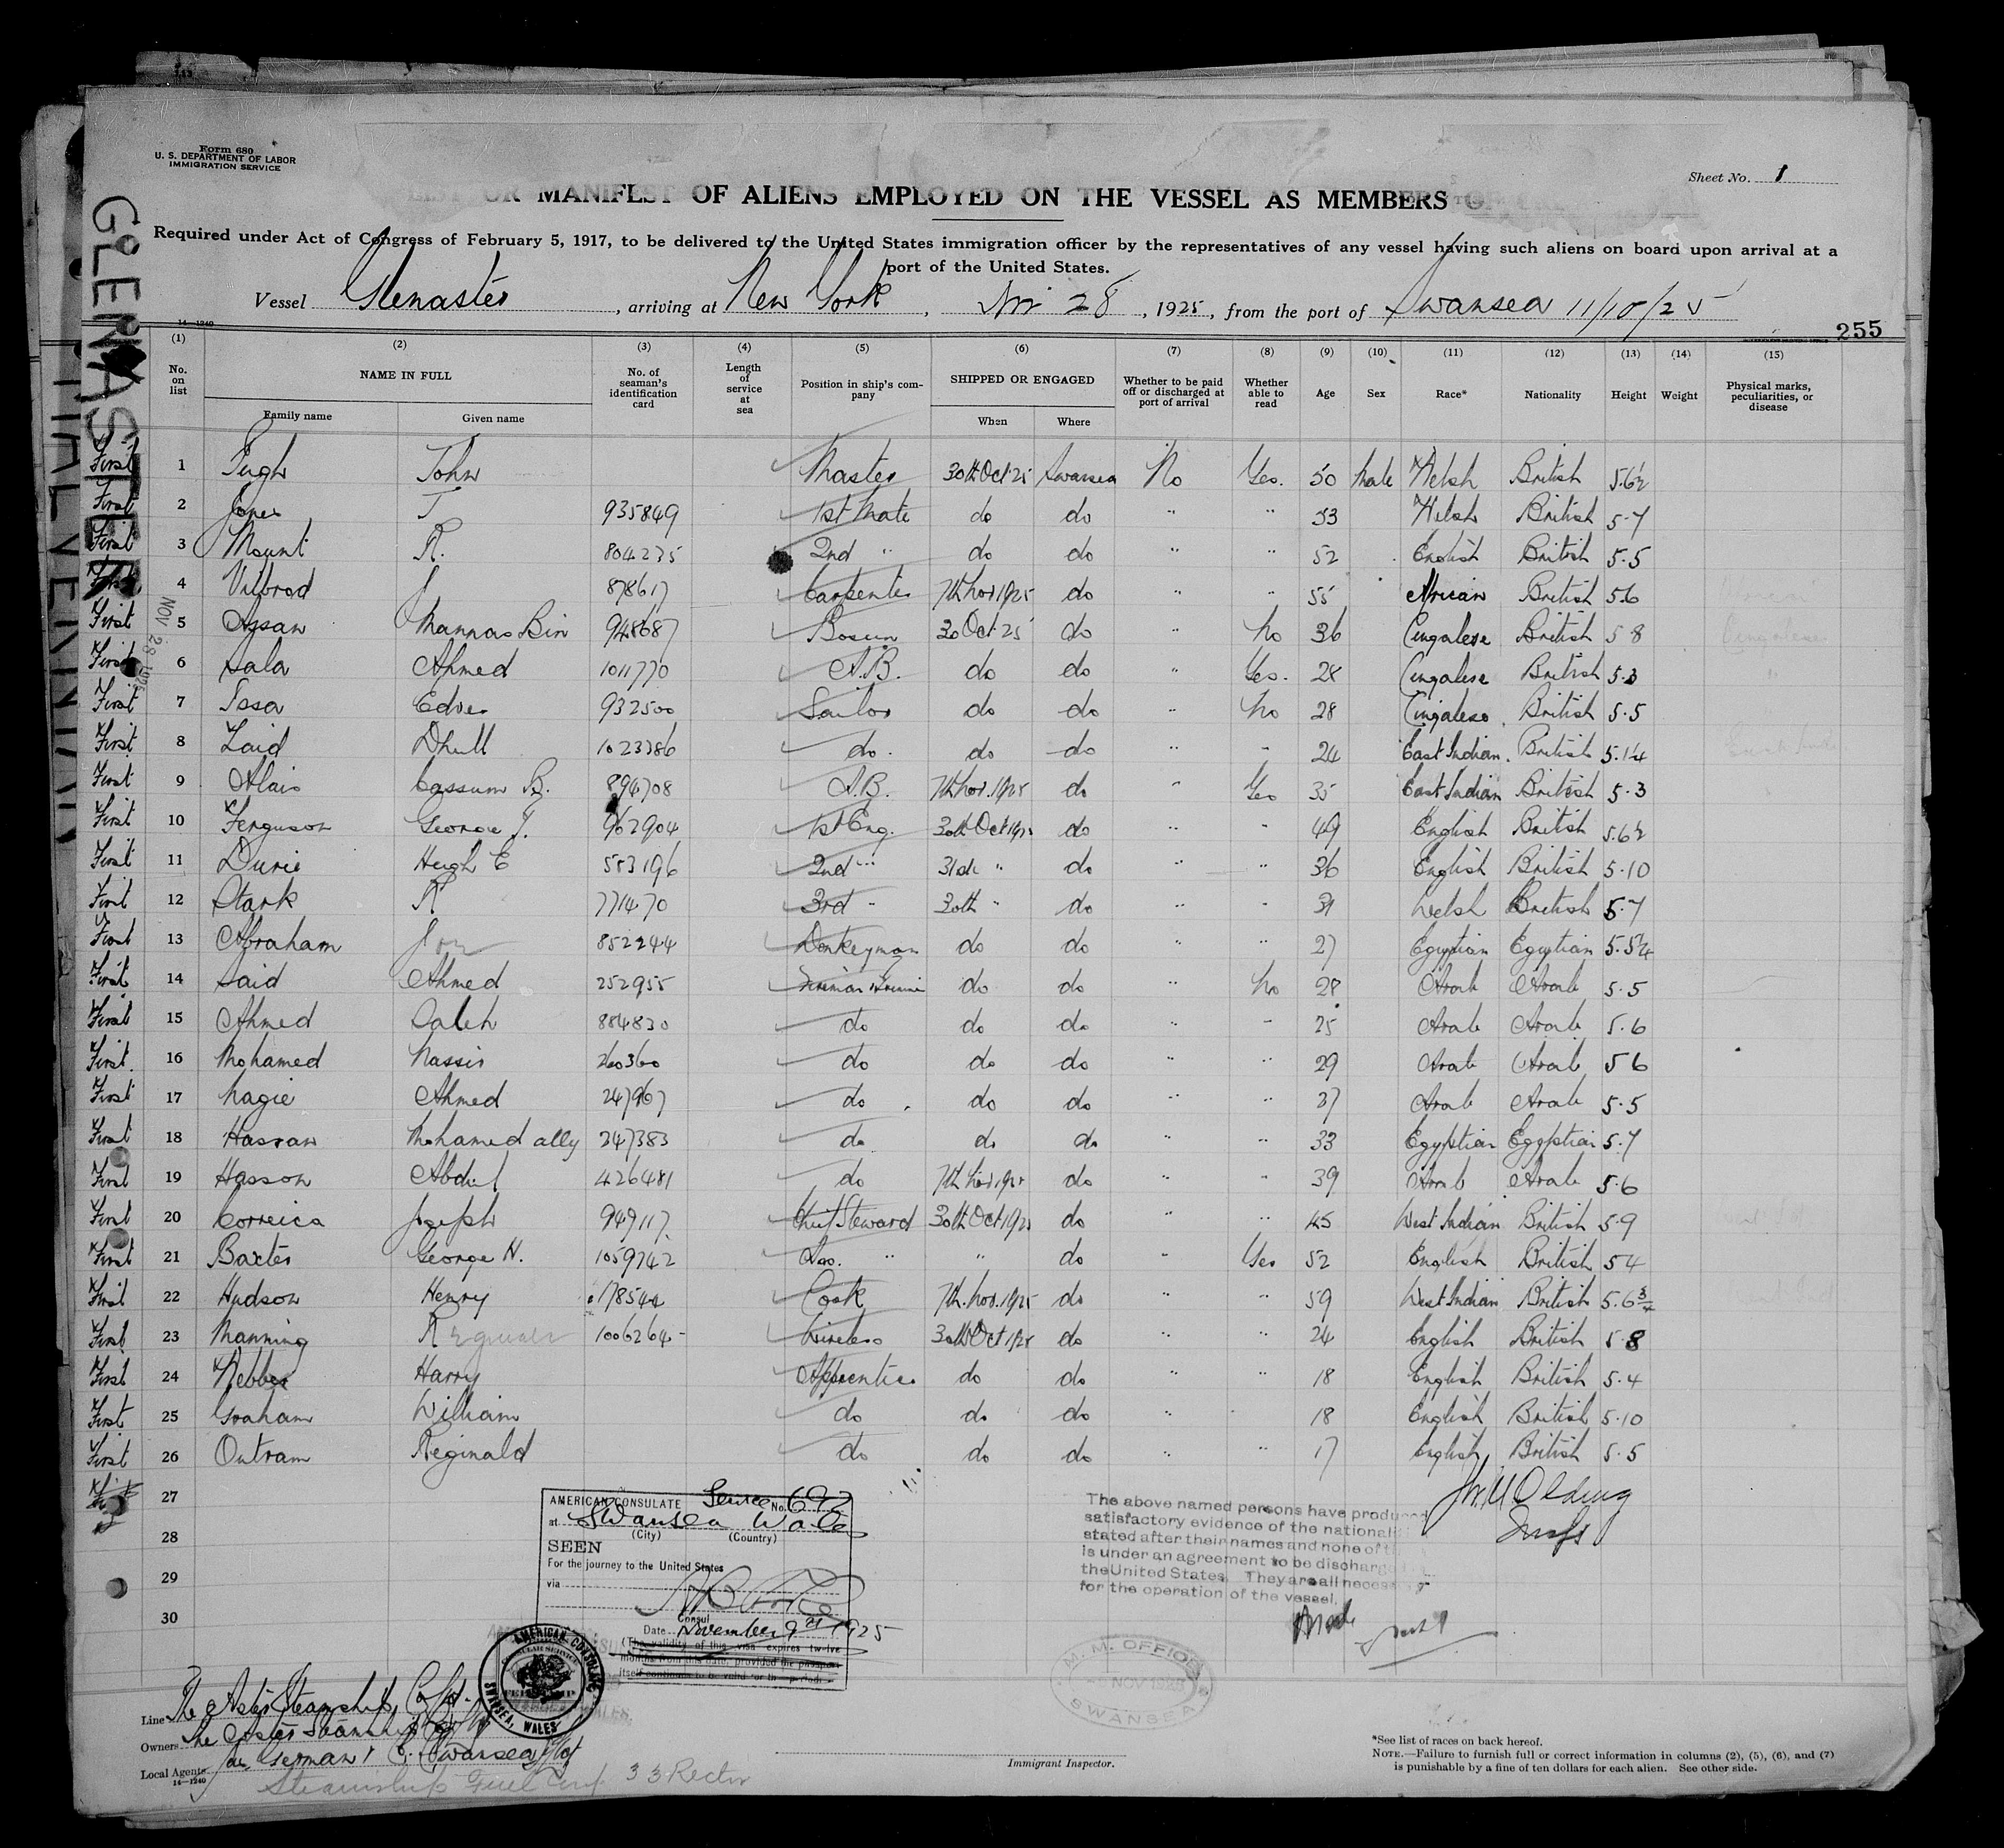 Form 680
U. S. DEPARTMENT OF LABOR
IMMIGRATION SERVICE
Sheet No. 1
LIST OR MANIFEST OF ALIENS EMPLOYED ON THE VESSEL AS MEMBERS OF
Required under Act of Congress of February 5, 1917, to be delivered to the United States immigration officer by the representatives of any vessel having such aliens on board upon arrival at a
port of the United States.
Vessel Glenaster, arriving at New York, Nov 28, 1925, from the port of Swansea 11/10/25
14—1240
255
GLENASTER
NOV 28 1925
(1) (2) (3) (4) (5) (6) (7) (8) (9) (10) (11) (12) (13) (14) (15)
No. on list NAME IN FULL Family name Given name No. of seaman's identification card Length of service at sea Position in ship's company SHIPPED OR ENGAGED When Where Whether to be paid off or discharged at port of arrival Whether able to read Age Sex Race* Nationality Height Weight Physical marks, peculiarities, or disease
First 1 Pugh John Master 30th Oct 25 Swansea No Yes. 50 Male Welsh British 5.6½
First 2 Jones T 935849 1st Mate do do " " 53 Welsh British 5.7
First 3 Mount R. 804235 2nd " do do " " 52 English British 5.5
First 4 Vilbrod J 878617 Carpenter 7th Nov 1925 do " " 55 African British 5.6
First 5 Assan Mannas Bin 948687 Bosun 30 Oct 25 do " No 36 Cingalese British 5 8
First 6 Sala Ahmed 1011770 A.B. do do " Yes. 28 Cingalese British 5.3
First 7 Issa Edres 932500 Sailor do do " No 28 Cingalese British 5.5
First 8 Zaid Dhull 1023386 do. do do " " 24 East Indian British 5.1¼
First 9 Alais Cassum 894708 A.B. 7th Nov. 1925 do " Yes 35 East Indian British 5.3
First 10 Ferguson George 962904 1st Eng. 30th Oct 1925 do " " 49 English British 5.6½
First 11 Durie Hugh E 583196 2nd " 31st " do " " 36 English British 5.10
First 12 Stark R 771470 3rd " 30th " do " " 31 Welsh British 5.7
First 13 Abraham 852244 Donkeyman do do " " 27 Egyptian Egyptian 5.5¾
First 14 Said Ahmed 252955 Fireman do do " No 28 Arab Arab 5.5
First 15 Ahmed Saleh 884830 do do do " " 25 Arab Arab 5.6
First 16 Mohamed Nassir 260360 do do do " " 29 Arab Arab 5 6
First 17 Nagie Ahmed 247967 do do do " " 37 Arab Arab 5.5
First 18 Hassan Mohamed ally 247383 do do do " " 33 Egyptian Egyptian 5.7
First 19 Hasson Abdul 426481 do 7th Nov 1925 do " " 39 Arab Arab 5.6
First 20 Correica Joseph 949117 Chief Steward 30th Oct 1925 do " " 45 West Indian British 5.9
First 21 Baxter George H. 1059742 " " do " Yes 52 English British 5 4
First 22 Hudson Henry 178542 Cook 7th. Nov. 1925 do " " 59 West Indian British 5.6¾
First 23 Manning R 1006264 Wireless 30th Oct 1925 do " " 24 English British 5 8
First 24 Webber Harry Apprentice do do " " 18 English British 5.4
First 25 Graham William do do do " " 18 English British 5.10
First 26 Outram Reginald do do do " " 17 English British 5.5
27
28
29
30
AMERICAN CONSULATE Service No. 692
at Swansea Wales
(City) (Country)
SEEN
For the journey to the United States
via
Consul
Date November 9th 1925
(The validity of this visa expires twelve
months from this date, provided the passport
itself continues to be valid for that period.)
AMERICAN CONSULATE
SWANSEA, WALES
The above named persons have produced
satisfactory evidence of the nationali
stated after their names and none of t
is under an agreement to be discharg
the United States. They are all necess
for the operation of the vessel.
M.M. OFFICE
NOV 1925
SWANSEA
Line The Aster Steamship Co Ltd.
Owners The Aster Steamship Co Ltd
Local Agents
14—1240
Steamship Fuel Corp. 33 Rector
Immigrant Inspector.
*See list of races on back hereof.
NOTE.—Failure to furnish full or correct information in columns (2), (5), (6), and (7)
is punishable by a fine of ten dollars for each alien. See other side.